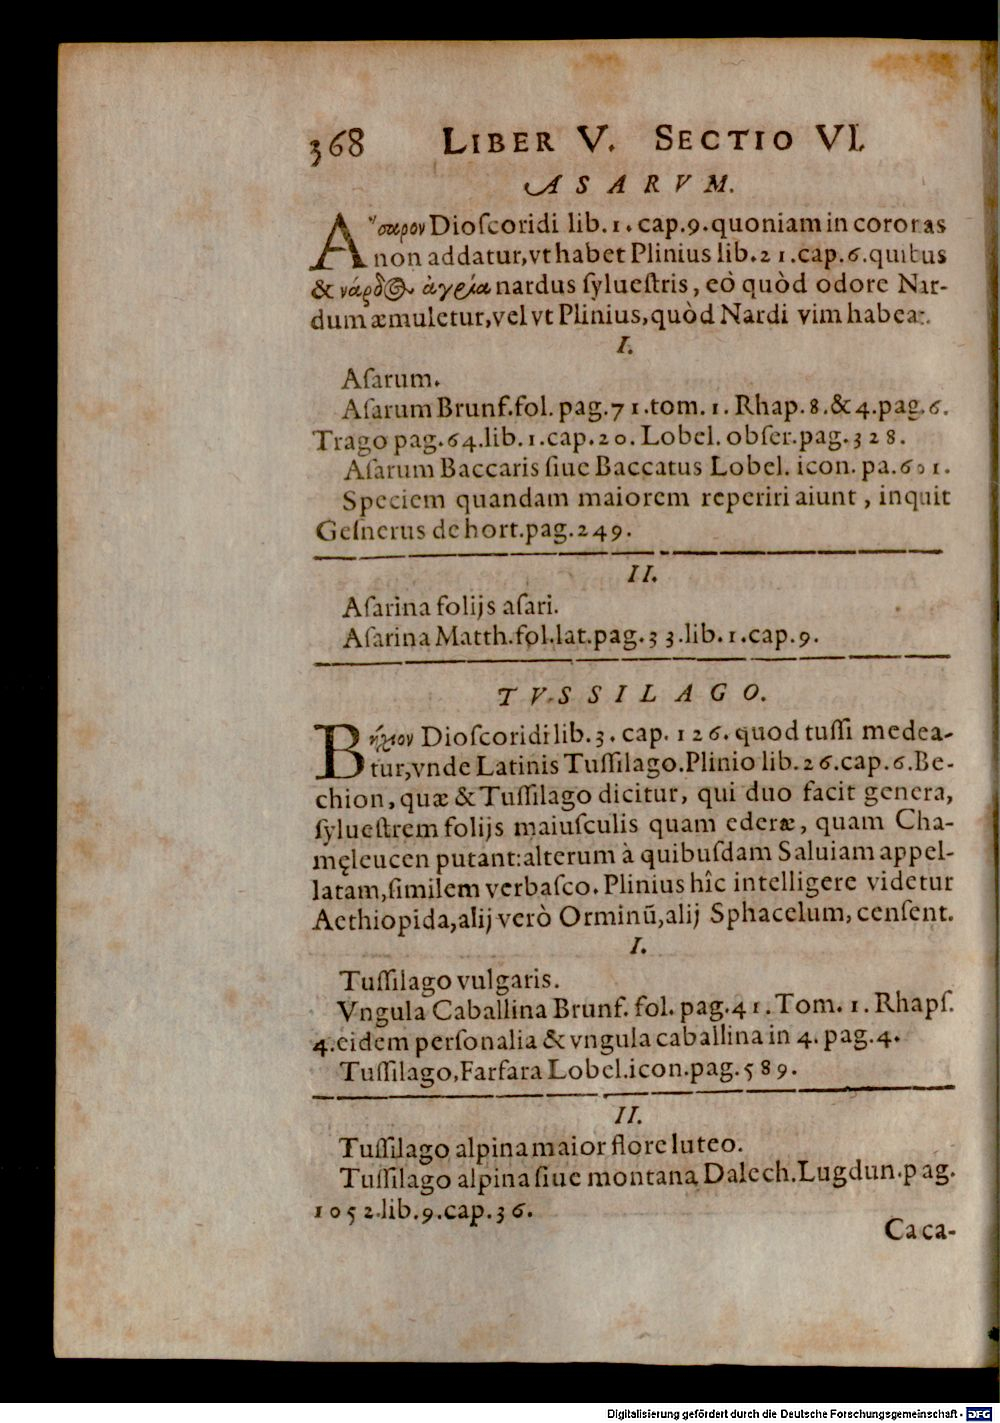 368 LIBER V. SECTIO VI.
ASARVM.
Ἄσαρον Dioſcoridi lib.1.cap.9.quoniam in coronas
non addatur,vt habet Plinius lib.21.cap.6.quibus
& νάρδος ἀγρία nardus ſylueſtris, eò quòd odore Nar-
dum æmuletur,vel vt Plinius,quòd Nardi vim habeat.
I.
Aſarum.
Aſarum Brunf.fol. pag.71.tom.1. Rhap.8.&4.pag.6.
Trago pag.64.lib.1.cap.20. Lobel. obſer.pag.328.
Aſarum Baccaris ſiue Baccatus Lobel. icon. pa.601.
Speciem quandam maiorem reperiri aiunt, inquit
Geſnerus de hort.pag.249.
II.
Aſarina folijs aſari.
Aſarina Matth.fol.lat.pag.33.lib.1.cap.9.
TVSSILAGO.
Βήχιον Dioſcoridi lib.3. cap. 126. quod tuſſi medea-
tur,vnde Latinis Tuſſilago.Plinio lib.26.cap.6.Be-
chion, quæ & Tuſſilago dicitur, qui duo facit genera,
ſylueſtrem folijs maiuſculis quam ederæ, quam Cha-
męleucen putant:alterum à quibuſdam Saluiam appel-
latam,ſimilem verbaſco. Plinius hîc intelligere videtur
Aethiopida,alij verò Orminũ,alij Sphacelum, cenſent.
I.
Tuſſilago vulgaris.
Vngula Caballina Brunf. fol. pag.41. Tom. 1. Rhapſ.
4.eidem perſonalia & vngula caballina in 4. pag.4.
Tuſſilago,Farfara Lobel.icon.pag.589.
II.
Tuſſilago alpina maior flore luteo.
Tuſſilago alpina ſiue montana Dalech.Lugdun.pag.
1052.lib.9.cap.36.
Caca-
Digitalisierung gefördert durch die Deutsche Forschungsgemeinschaft - DFG